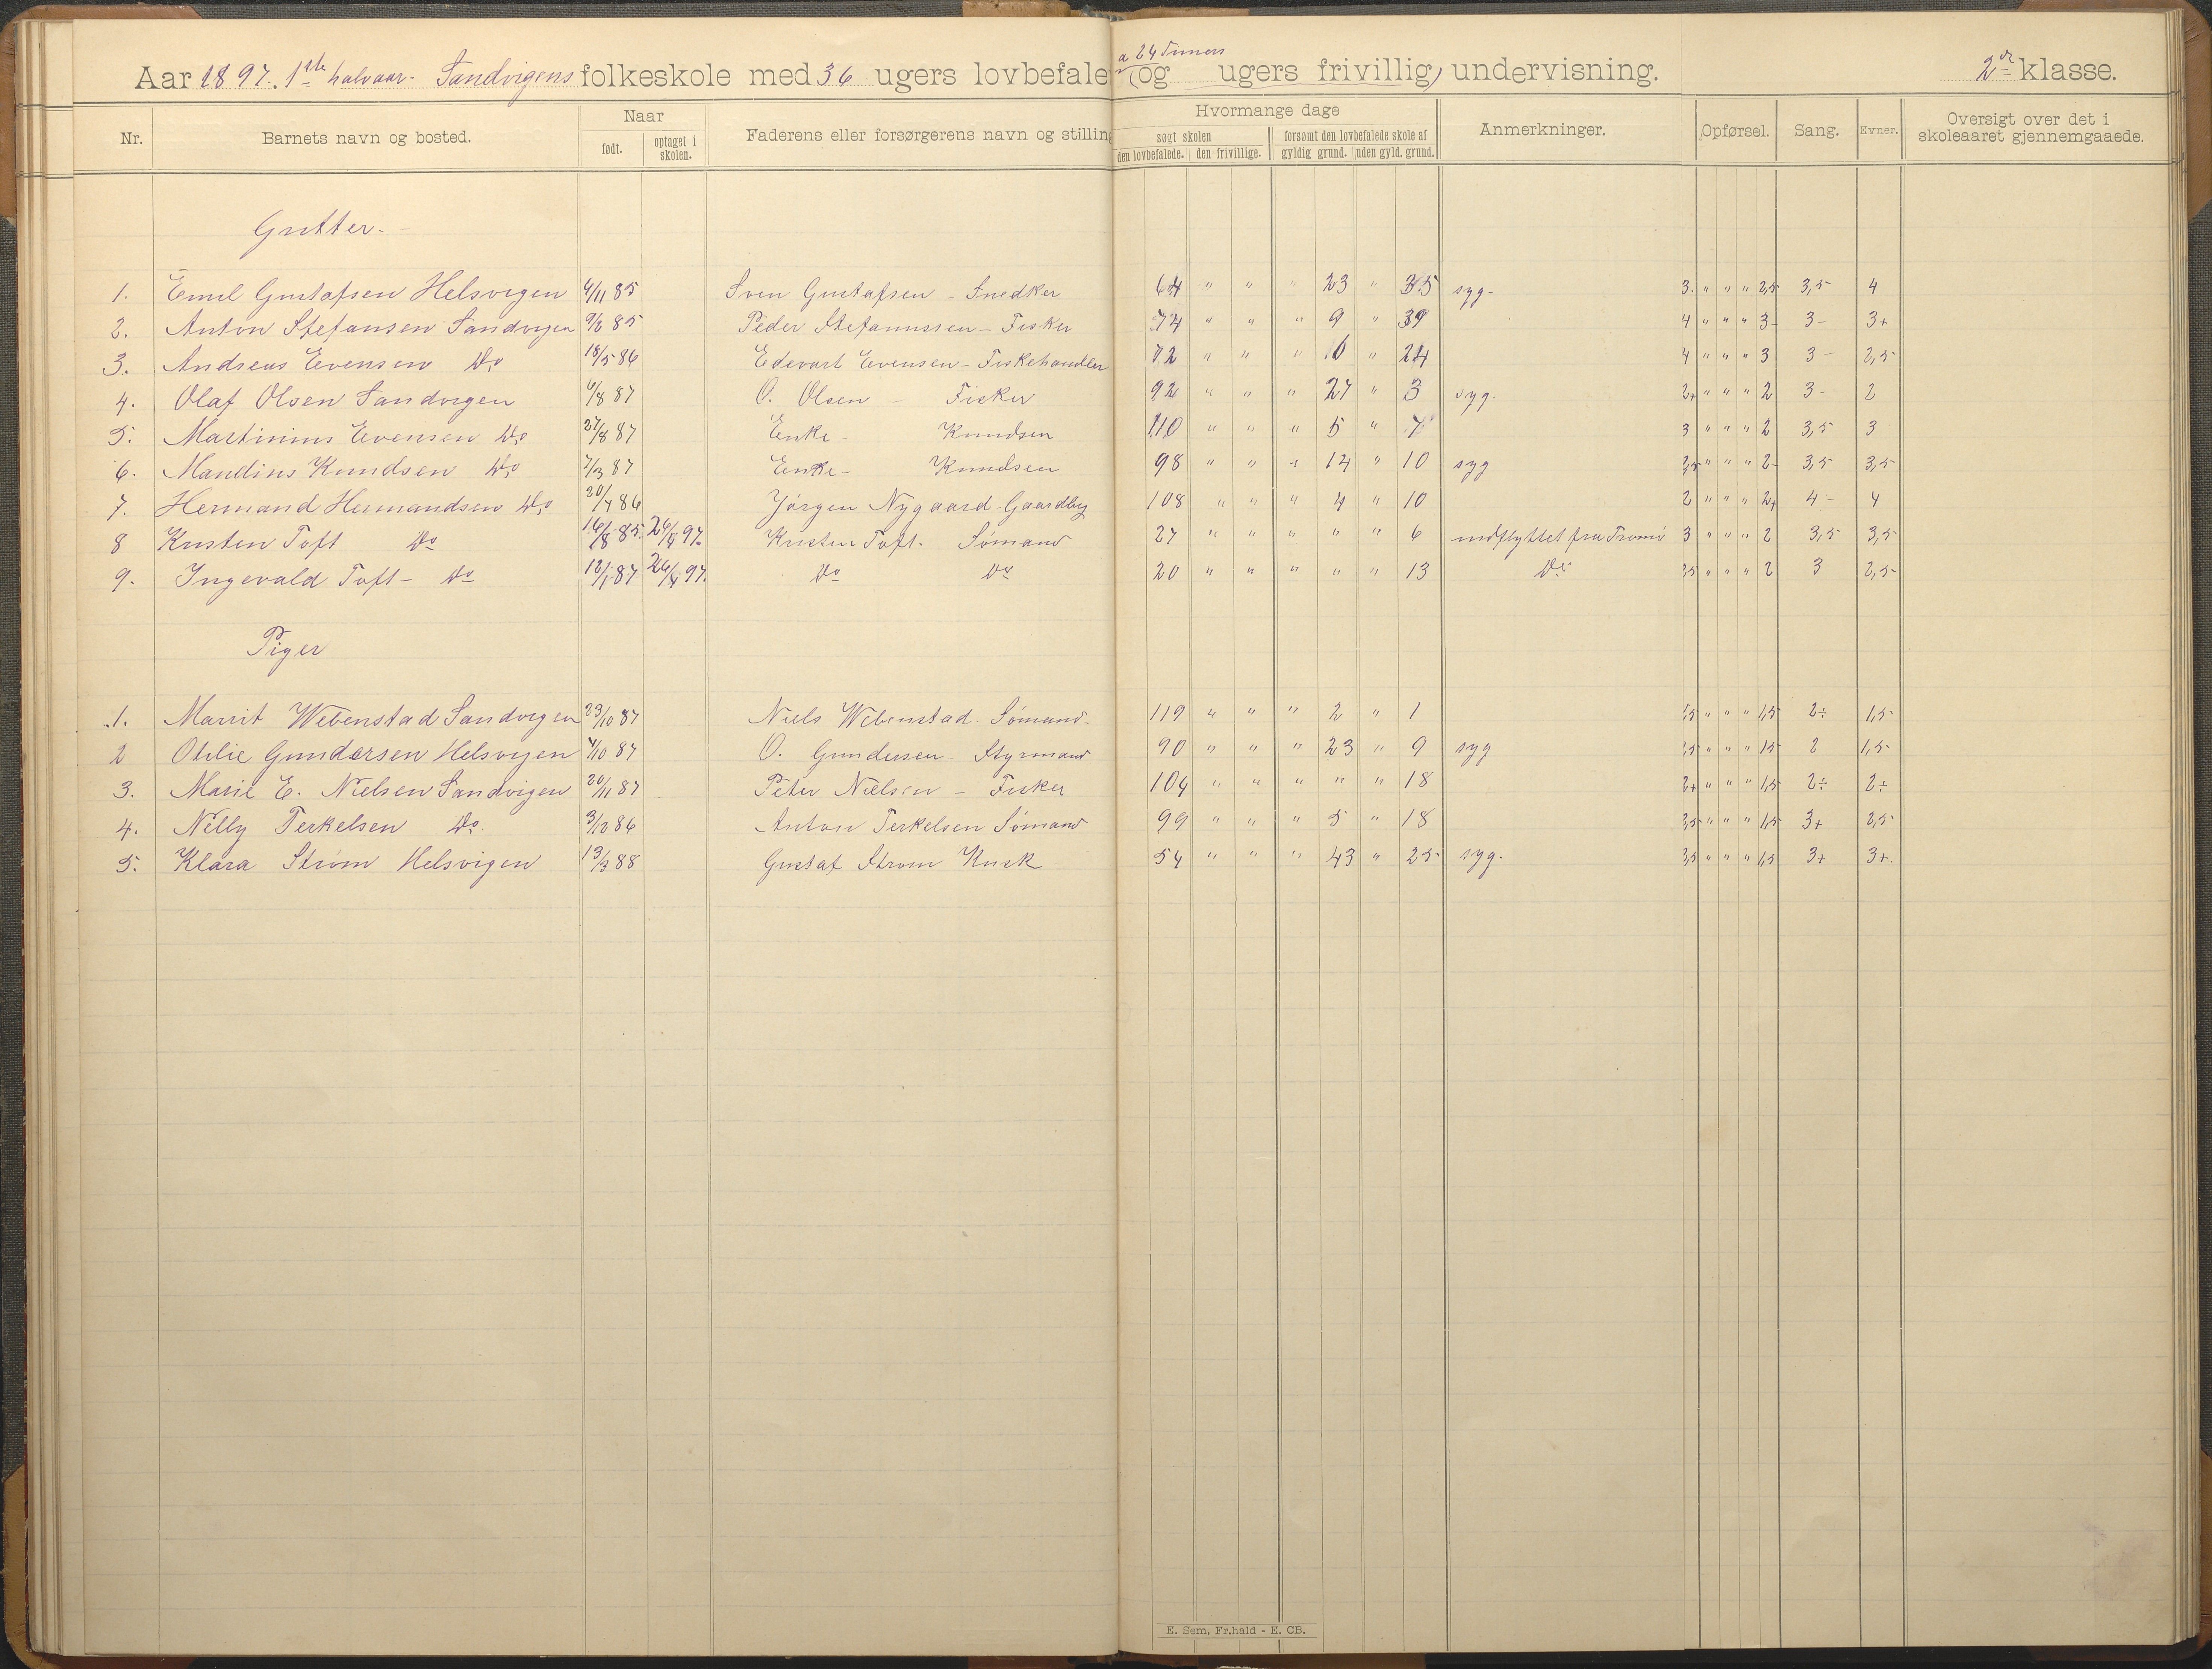 Aar 1897. 1ste halvaar. Sandvigens folkeskole med 36 ugers lovbefale (og ugers frivillig) undervisning. 2de klasse.
a 24 Timers
Nr. Barnets navn og bosted. Naar Faderens eller forsørgerens navn og stilling Hvormange dage Anmerkninger. Opførsel. Sang. Evner. Oversigt over det i skoleaaret gjennemgaaede.
født. optaget i skolen. søgt skolen forsømt den lovbefalede skole af
den lovbefalede. den frivillige. gyldig grund. uden gyld. grund.
Gutter.
1. Emil Gustafsen Helsvigen 4/11 85 Sven Gustafsen - Snedker 64 " " " 23 " 35 syg. 3. " " " 2,5 3,5 4
2. Anton Stefansen Sandvigen 9/2 85 Peder Stefanussen - Fisker 74 " " " 9 " 39 4 " " " 3- 3- 3+
3. Andreas Evensen Do 18/5 86 Edevart Evensen - Fiskehandler 72 " " " 6 " 24 4 " " " 3 3- 2,5
4. Olaf Olsen Sandvigen 6/8 87 O. Olsen - Fisker 92 " " " 27 " 3 syg. 2+ " " " 2 3- 2
5. Martinius Evensen Do 27/8 87 Enke - Knudsen 110 " " " 5 " 7 3 " " " 2 3,5 3
6. Mandius Knudsen Do 7/3 87 Enke - Knudsen 98 " " " 14 " 10 syg 2,5 " " " 2- 3,5 3,5
7. Hermand Hermandsen Do 20/7 86 Jørgen Nygaard Gaardbg 108 " " " 4 " 10 2 " " " 2+ 4- 4
8 Kristen Toft Do 16/8 85. 26/4 97. Kristen Toft. Sømand 27 " " " " " 6 indflyttet fra Tromø 3 " " " 2 3,5 3,5
9. Ingevald Toft - Do 12/1 87 26/4 97. Do Do 20 " " " " " 13 Do 2,5 " " " 2 3 2,5
Piger
1. Marrit Webenstad Sandvigen 23/10 87 Niels Webenstad Sømand. 119 " " " 2 " 1 1,5 " " " 1,5 2÷ 1,5
2 Otilie Gundersen Helsvigen 4/10 87 O. Gundersen - Styrmand 90 " " " 23 " 9 syg 1,5 " " " 1,5 2 1,5
3. Marie E. Nielsen Sandvigen 20/11 87 Peter Nielsen - Fisker 104 " " " " " 18 2+ " " " 1,5 2÷ 2÷
4. Nelly Terkelsen Do. 3/12 86 Anton Terkelsen Sømand 99 " " " 5 " 18 2,5 " " " 1,5 3+ 2,5
5. Klara Strøm Helsvigen 13/3 88 Gustaf Strøm Kusk 54 " " " 43 " 25 syg. 2,5 " " " 1,5 3+ 3+.
E. Sem, Fr.hald - E. CB.